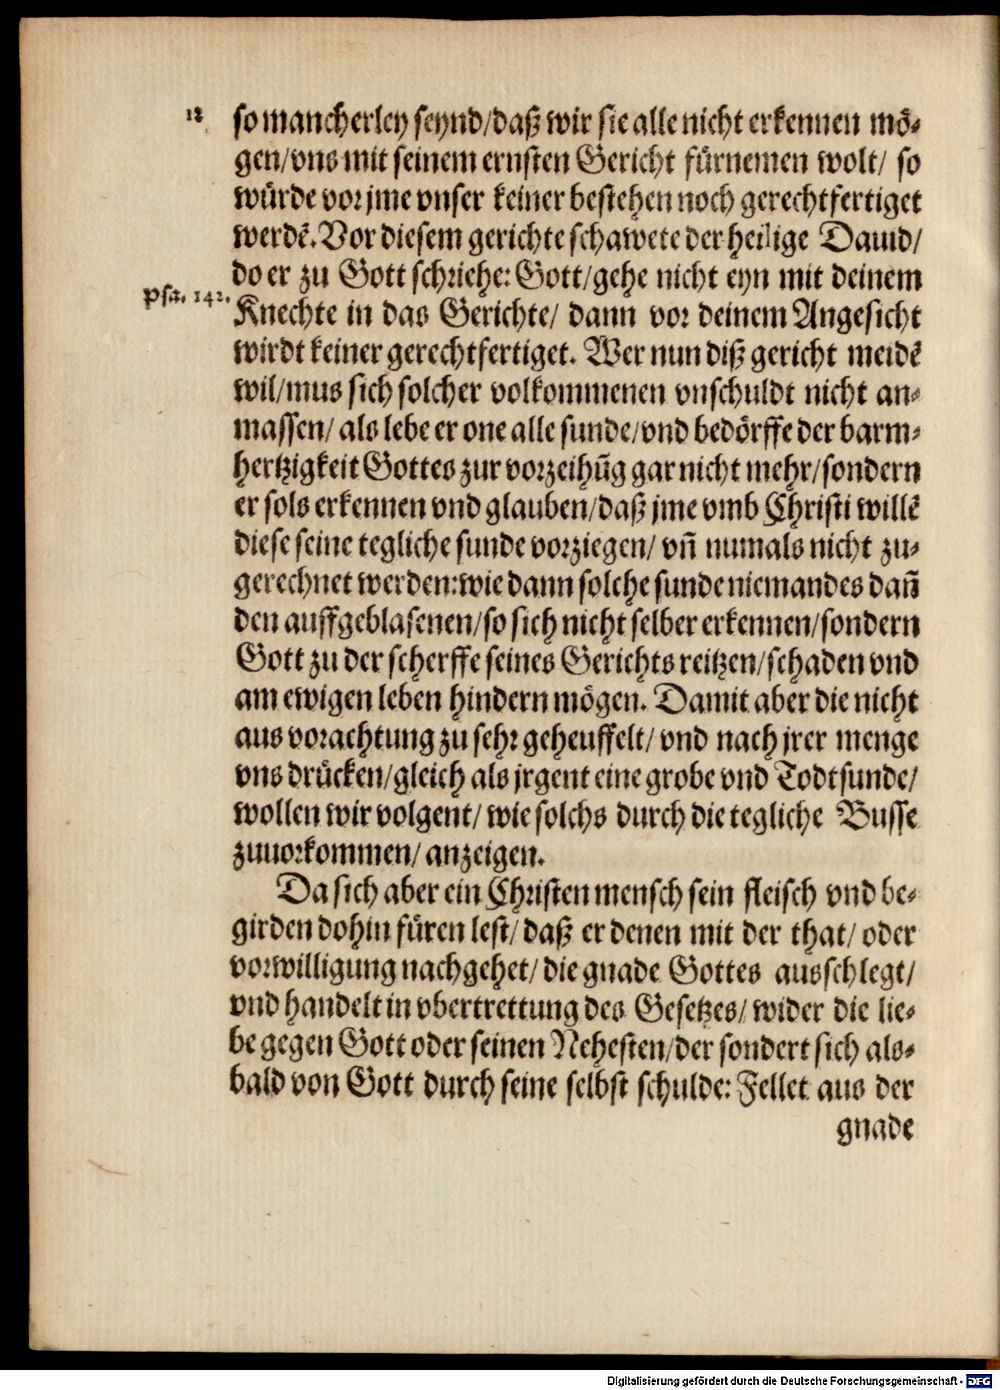 18 so mancherley seynd/daß wir sie alle nicht erkennen mö-
gen/vns mit seinem ernsten Gericht fürnemen wolt/ so
würde vor jme vnser keiner bestehen noch gerechtfertiget
werdē. Vor diesem gerichte schawete der heilige Dauid/
do er zu Gott schriehe: Gott/gehe nicht eyn mit deinem
Psa. 142. Knechte in das Gerichte/ dann vor deinem Angesicht
wirdt keiner gerechtfertiget. Wer nun diß gericht meidē
wil/mus sich solcher volkommenen vnschuldt nicht an-
massen/ als lebe er one alle sunde/vnd bedörffe der barm-
hertzigkeit Gottes zur vorzeihūg gar nicht mehr/sondern
er sols erkennen vnd glauben/daß jme vmb Christi willē
diese seine tegliche sunde vorziegen/ vn̄ numals nicht zu-
gerechnet werden: wie dann solche sunde niemandes dan̄
den auffgeblasenen/so sich nicht selber erkennen/sondern
Gott zu der scherffe seines Gerichts reitzen/schaden vnd
am ewigen leben hindern mögen. Damit aber die nicht
aus vorachtung zu sehr geheuffelt/ vnd nach jrer menge
vns drücken/gleich als jrgent eine grobe vnd Todtsunde/
wollen wir volgent/ wie solchs durch die tegliche Busse
zuuorkommen/ anzeigen.
Da sich aber ein Christen mensch sein fleisch vnd be-
girden dohin füren lest/ daß er denen mit der that/ oder
vorwilligung nachgehet/ die gnade Gottes ausschlegt/
vnd handelt in vbertrettung des Gesetzes/ wider die lie-
be gegen Gott oder seinen Nehesten/der sondert sich als-
bald von Gott durch seine selbst schulde: Fellet aus der
gnade
Digitalisierung gefördert durch die Deutsche Forschungsgemeinschaft - DFG